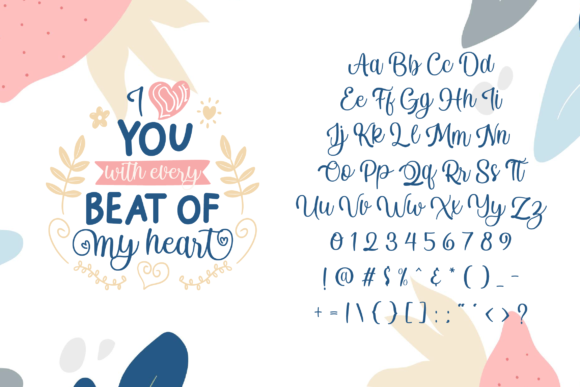 I Love
YOU
with every
BEAT OF
my heart
Aa Bb Cc Dd
Ee Ff Gg Hh Ii
Jj Kk Ll Mm Nn
Oo Pp Qq Rr Ss Tt
Uu Vv Ww Xx Yy Zz
0 1 2 3 4 5 6 7 8 9
! @ # $ % ^ & * ( ) _ -
+ = | \ { } [ ] : ; " ' < > ?